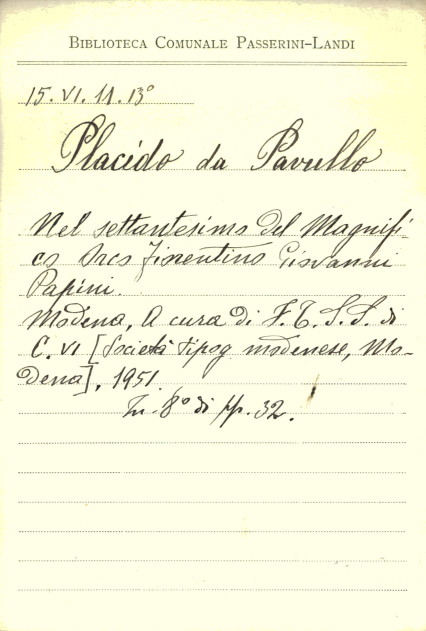 BIBLIOTECA COMUNALE PASSERINI-LANDI
15.VI.11.13°
Placido da Pavullo
Nel settantesimo del Magnifi-
co Orco Fiorentino Giovanni
Papini.
Modena, A cura di F.T.S.S. di
C. VI [Società tipog modenese, Mo-
dena], 1951.
In-8° di pp. 32.